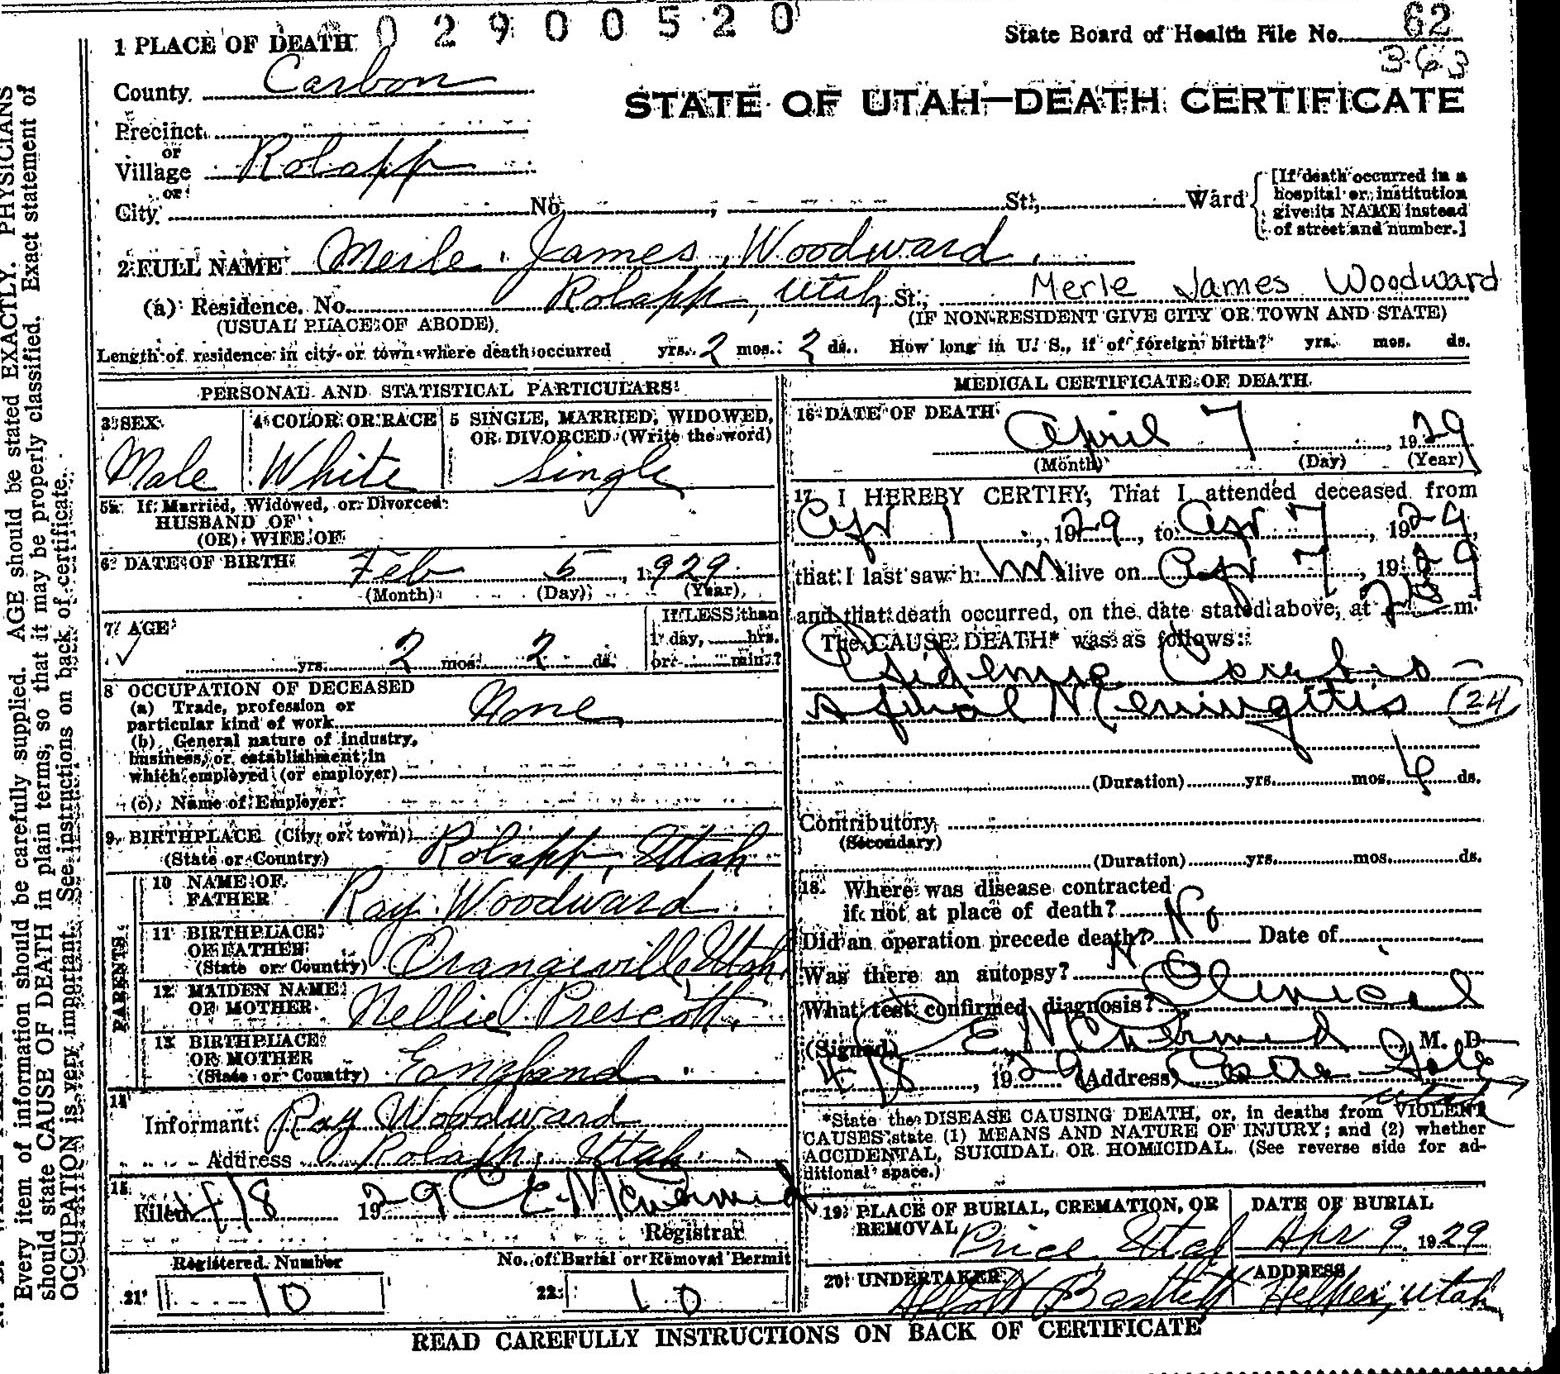 02900520
State Board of Health File No. 62
363
1 PLACE OF DEATH
County Carbon
STATE OF UTAH—DEATH CERTIFICATE
Precinct
or
Village Rolapp
or
City No. St., Ward
[If death occurred in a
hospital or institution
give its NAME instead
of street and number.]
2 FULL NAME Merle James Woodward
(a) Residence. No. Rolapp, Utah St., Merle James Woodward
(USUAL PLACE OF ABODE) (IF NON-RESIDENT GIVE CITY OR TOWN AND STATE)
Length of residence in city or town where death occurred yrs. 2 mos. 2 ds. How long in U. S., if of foreign birth? yrs. mos. ds.
PERSONAL AND STATISTICAL PARTICULARS
3 SEX
Male
4 COLOR OR RACE
White
5 SINGLE, MARRIED, WIDOWED,
OR DIVORCED (Write the word)
Single
5a If Married, Widowed, or Divorced
HUSBAND OF
(OR) WIFE OF
6 DATE OF BIRTH Feb 5, 1929
(Month) (Day) (Year)
7 AGE
yrs. 2 mos. 2 ds.
If LESS than
1 day, hrs.
or min.?
8 OCCUPATION OF DECEASED
(a) Trade, profession or
particular kind of work None
(b) General nature of industry,
business, or establishment in
which employed (or employer)
(c) Name of Employer
9 BIRTHPLACE (City or town) Rolapp, Utah
(State or Country)
PARENTS
10 NAME OF
FATHER Ray Woodward
11 BIRTHPLACE
OF FATHER
(State or Country) Orangeville, Utah
12 MAIDEN NAME
OF MOTHER Nellie Prescott
13 BIRTHPLACE
OR MOTHER
(State or Country) England
14
Informant: Ray Woodward
Address Rolapp, Utah
15
Filed 4/8 1929 C E McDermid
Registrar
Registered Number
21 10
No. of Burial or Removal Permit
22 10
MEDICAL CERTIFICATE OF DEATH
16 DATE OF DEATH
April 7, 1929
(Month) (Day) (Year)
17 I HEREBY CERTIFY, That I attended deceased from
Apr 1, 1929, to Apr 7, 1929,
that I last saw h im alive on Apr 7, 1929
and that death occurred, on the date stated above, at m.
The CAUSE DEATH* was as follows:
Epidemic Cerebro-
Spinal Meningitis (24)
(Duration) yrs. mos. 6 ds.
Contributory
(Secondary)
(Duration) yrs. mos. ds.
18. Where was disease contracted
if not at place of death?
Did an operation precede death? No Date of
Was there an autopsy? No
What test confirmed diagnosis? Clinical
(Signed) C E McDermid, M. D.
4/8, 1929 (Address) Castle Gate
Utah
*State the DISEASE CAUSING DEATH, or, in deaths from VIOLENT
CAUSES state (1) MEANS AND NATURE OF INJURY; and (2) whether
ACCIDENTAL, SUICIDAL OR HOMICIDAL. (See reverse side for ad-
ditional space.)
19 PLACE OF BURIAL, CREMATION, OR
REMOVAL Price, Utah
DATE OF BURIAL
Apr 9, 1929
20 UNDERTAKER
Bartlett
ADDRESS
Helper, Utah
READ CAREFULLY INSTRUCTIONS ON BACK OF CERTIFICATE
Every item of information should be carefully supplied. AGE should be stated EXACTLY. PHYSICIANS
should state CAUSE OF DEATH in plain terms, so that it may be properly classified. Exact statement of
OCCUPATION is very important. See instructions on back of certificate.